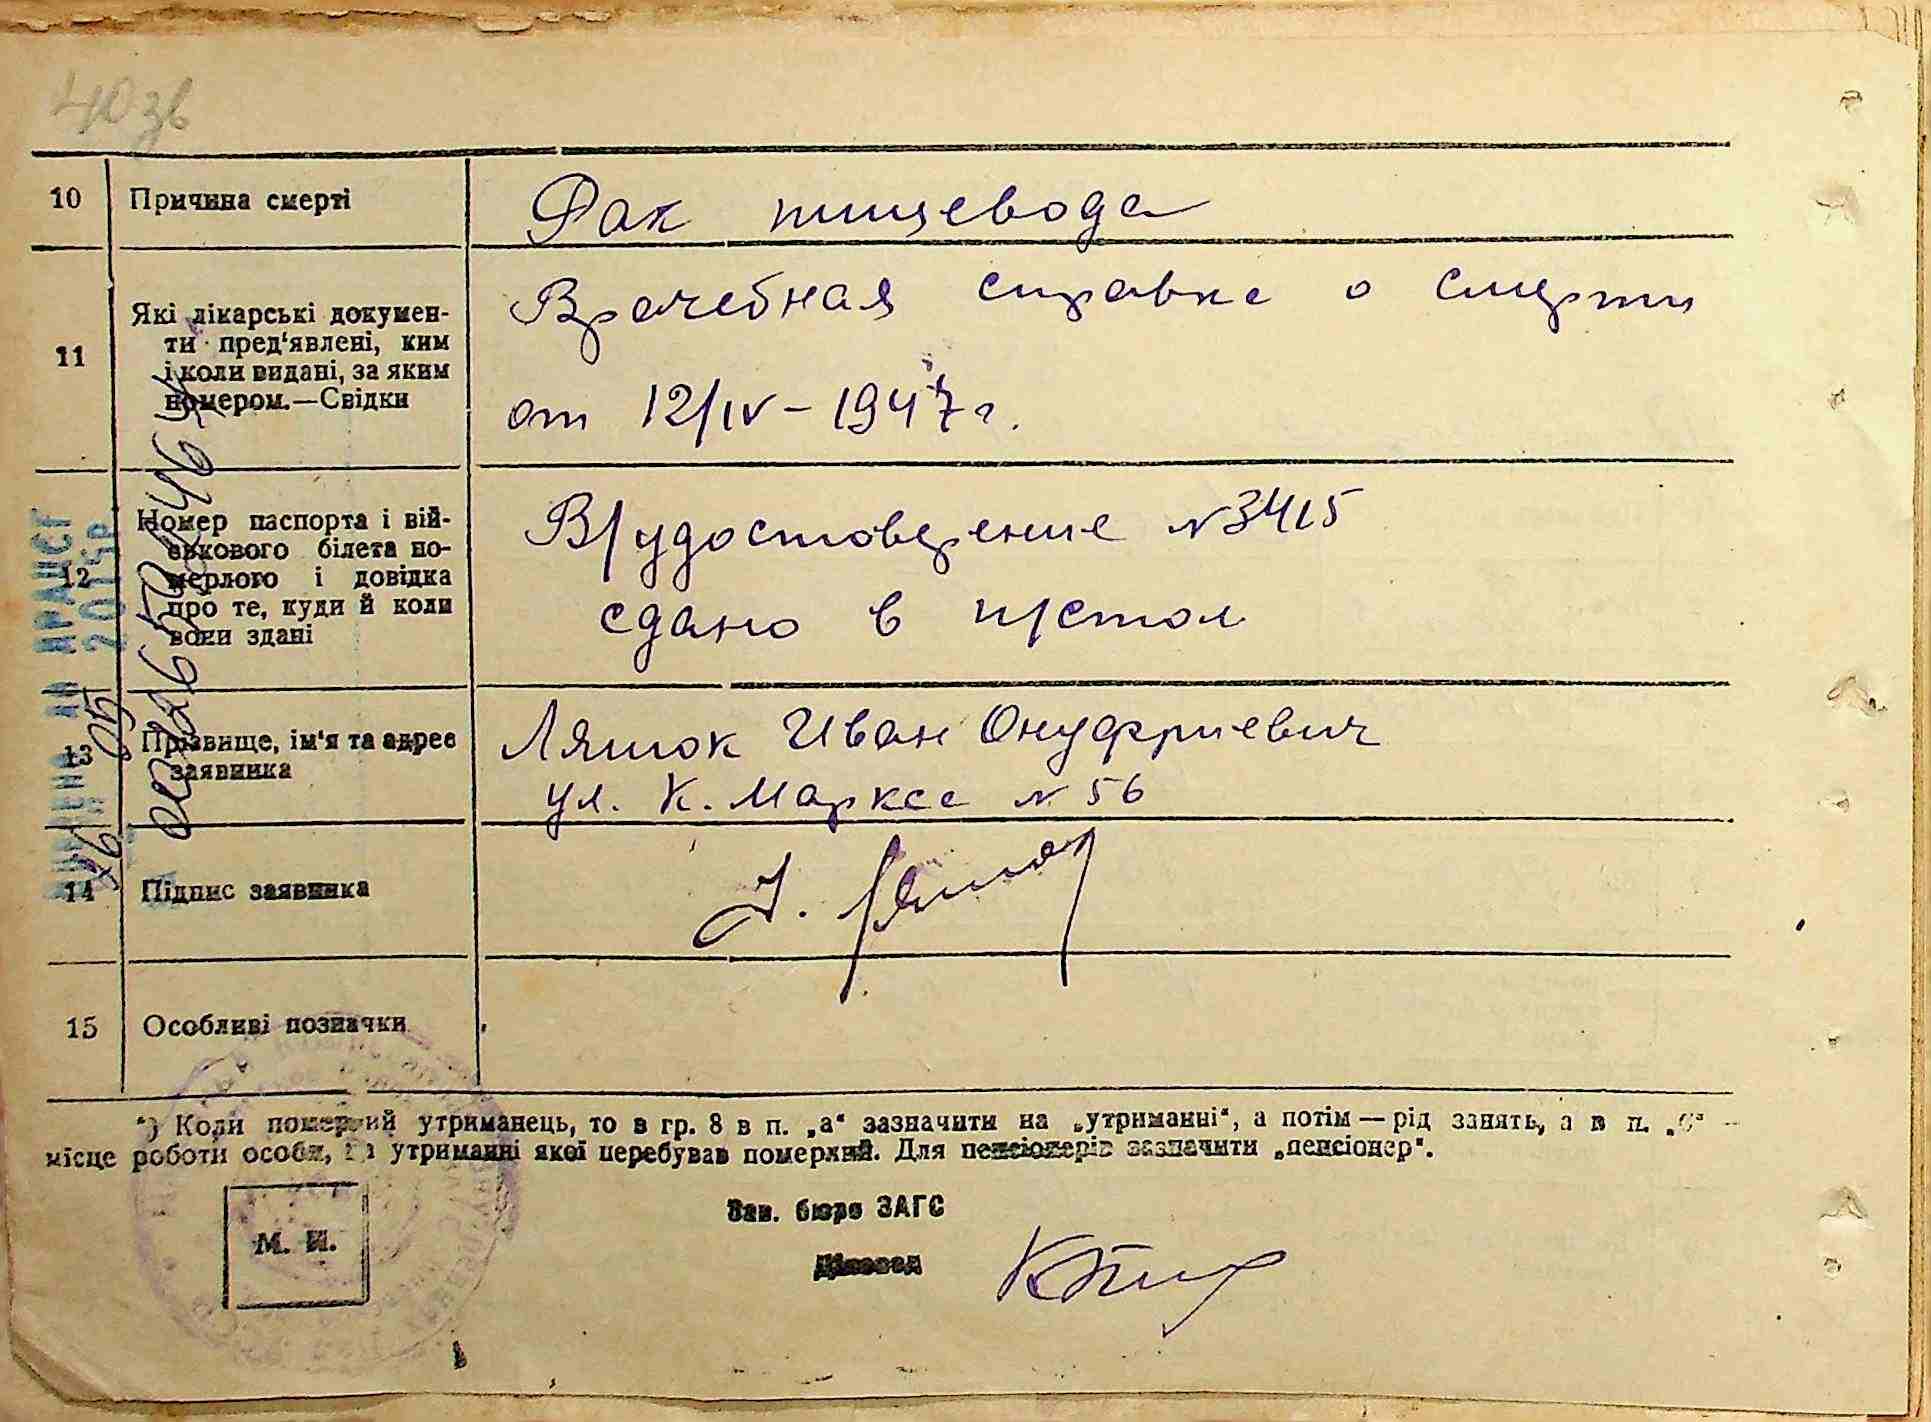 40 зв
10 Причина смерті Рак пищевода
11 Які лікарські докумен-
ти пред'явлені, ким
і коли видані, за яким
номером.—Свідки
Врачебная справка о смерти
от 12/IV – 1947 г.
12 Номер паспорта і вій-
ськового білета по-
мерлого і довідка
про те, куди й коли
вони здані
В/удостоверение № 3415
сдано в п/стол
13 Прізвище, ім'я та адрес
заявника
Ляшок Иван Онуфриевич
ул. К. Маркса № 56
14 Підпис заявника
15 Особливі позначки
*) Коли померлий утриманець, то в гр. 8 в п. „а“ зазначити на „утриманні“, а потім — рід занять, а в п. „б“ –
місце роботи особи, на утриманні якої перебував померлий. Для пенсіонерів зазначити „пенсіонер“.
М. П.
Зав. бюро ЗАГС
Діловод